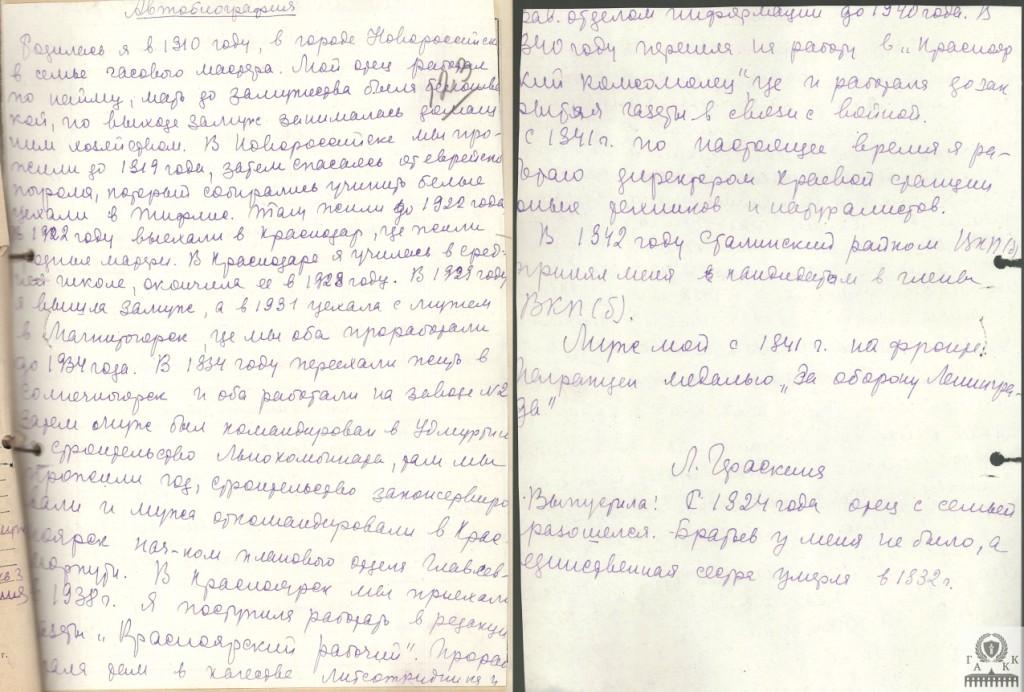 Автобиография
Родилась я в 1910 году, в городе Новороссийске
в семье часового мастера. Мой отец работал
по найму, мать до замужества была
кой, по выходе замуж занималась домаш
ним хозяйством. В Новороссийске мы про-
жили до 1919 года, затем спасаясь от еврейского
погрома, который собирались учинить белые
уехали в Тифлис. Там жили до 1922 года
В 1922 году выехали в Краснодар, где жили
родные матери. В Краснодаре я училась в сред-
ней школе, окончила ее в 1928 году. В 1928 году
я вышла замуж, а в 1931 уехала с мужем
в Магнитогорск, где мы оба проработали
до 1934 года. В 1934 году переехали жить в
Солнечногорск и оба работали на заводе №2
Затем муж был командирован в Удмуртию
строительство Льнокомбината, там мы
прожили год, строительство законсервиро
вали и мужа откомандировали в Крас
ноярск нач-ком планового отдела Главсев-
морпути. В Красноярск мы приехали
в 1938 г. Я поступила работать в редакцию
газеты „Красноярский рабочий". Прораб
тала там в качестве литсотрудника и
зав. отделом информации до 1940 года. В
1940 году перешла на работу в „Краснояр
ский комсомолец" где и работала до зак
рытия газеты в связи с войной.
С 1941 г. по настоящее время я ра-
ботаю директором Краевой станции
юных техников и натуралистов.
В 1942 году Сталинский райком ВКП(б)
принял меня кандидатом в члены
ВКП(б).
Муж мой с 1941 г. на фронте.
Награжден медалью „За оборону Ленингра-
да"
Л. Гераскина
Выпустила: С 1924 года отец с семьей
разошелся. Братьев у меня не было, а
единственная сестра умерла в 1932 г.
Г А К К